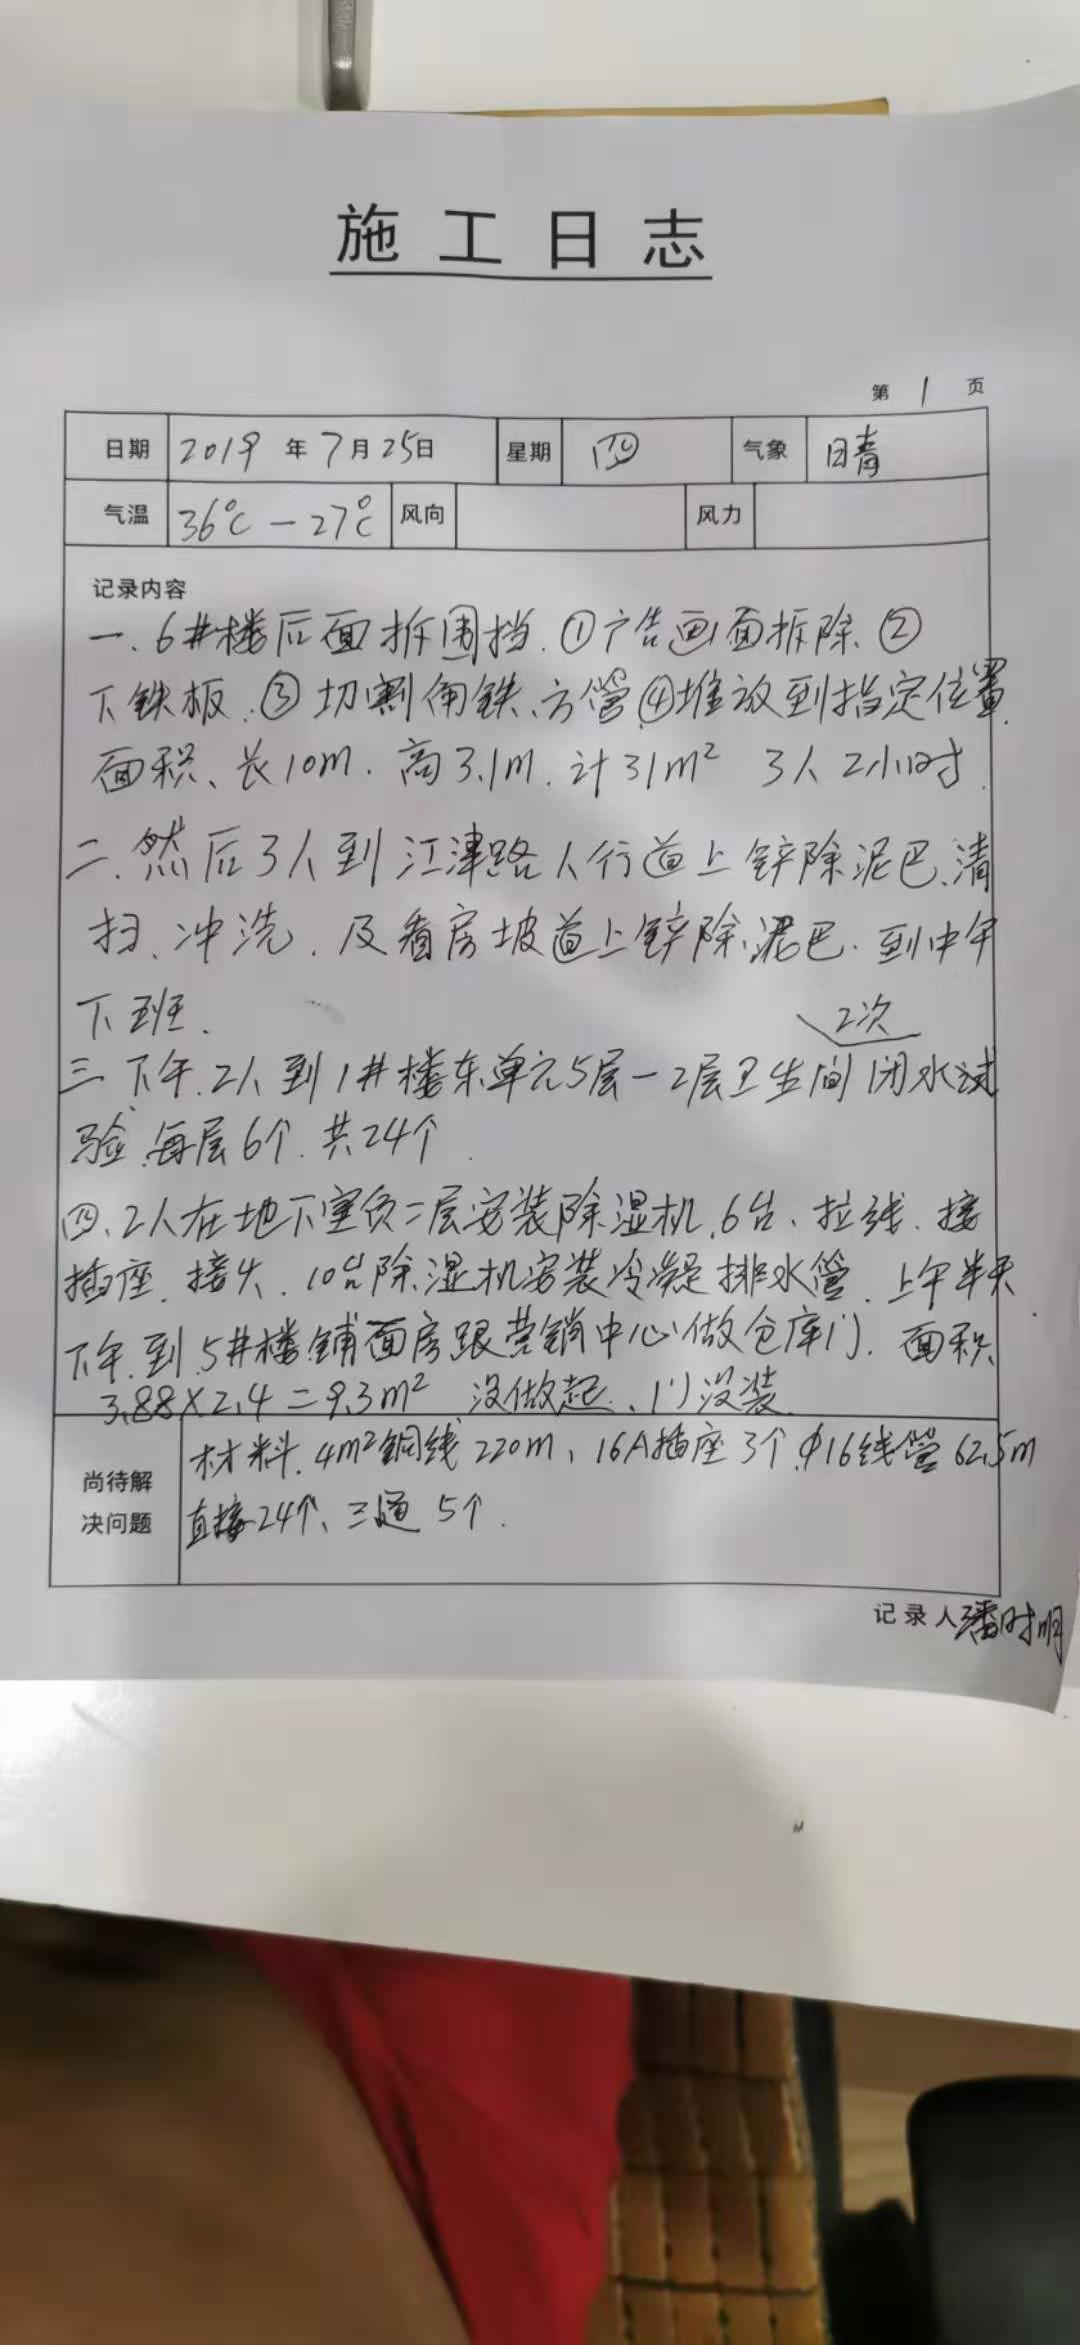 施工日志
第 1 页
日期 2019 年 7 月 25日 星期 四 气象 晴
气温 36℃－27℃ 风向 风力
记录内容
一、6#楼后面拆围挡、①广告画面拆除、②
下铁板、③切割角铁、方管④堆放到指定位置
面积、长10m、高3.1m、计31m² 3人2小时
二、然后3人到江津路人行道上锌除泥巴、清
扫、冲洗、及看房坡道上锌除泥巴、到中午
下班、
2次
三、下午、2人到1#楼东单元5层－2层卫生间闭水试
验、每层6个、共24个
四、2人在地下室负二层安装除湿机、6台、拉线、接
插座、接头、10台除湿机安装冷凝排水管、上午半天
下午、到5#楼铺面房跟营销中心做仓库门、面积
3.88×2.4=9.3m² 没做起、门没装
尚待解
决问题
材料、4m²铜线220m、16A插座3个、φ16线管62.5m
直接24个、三通5个、
记录人 潘时明